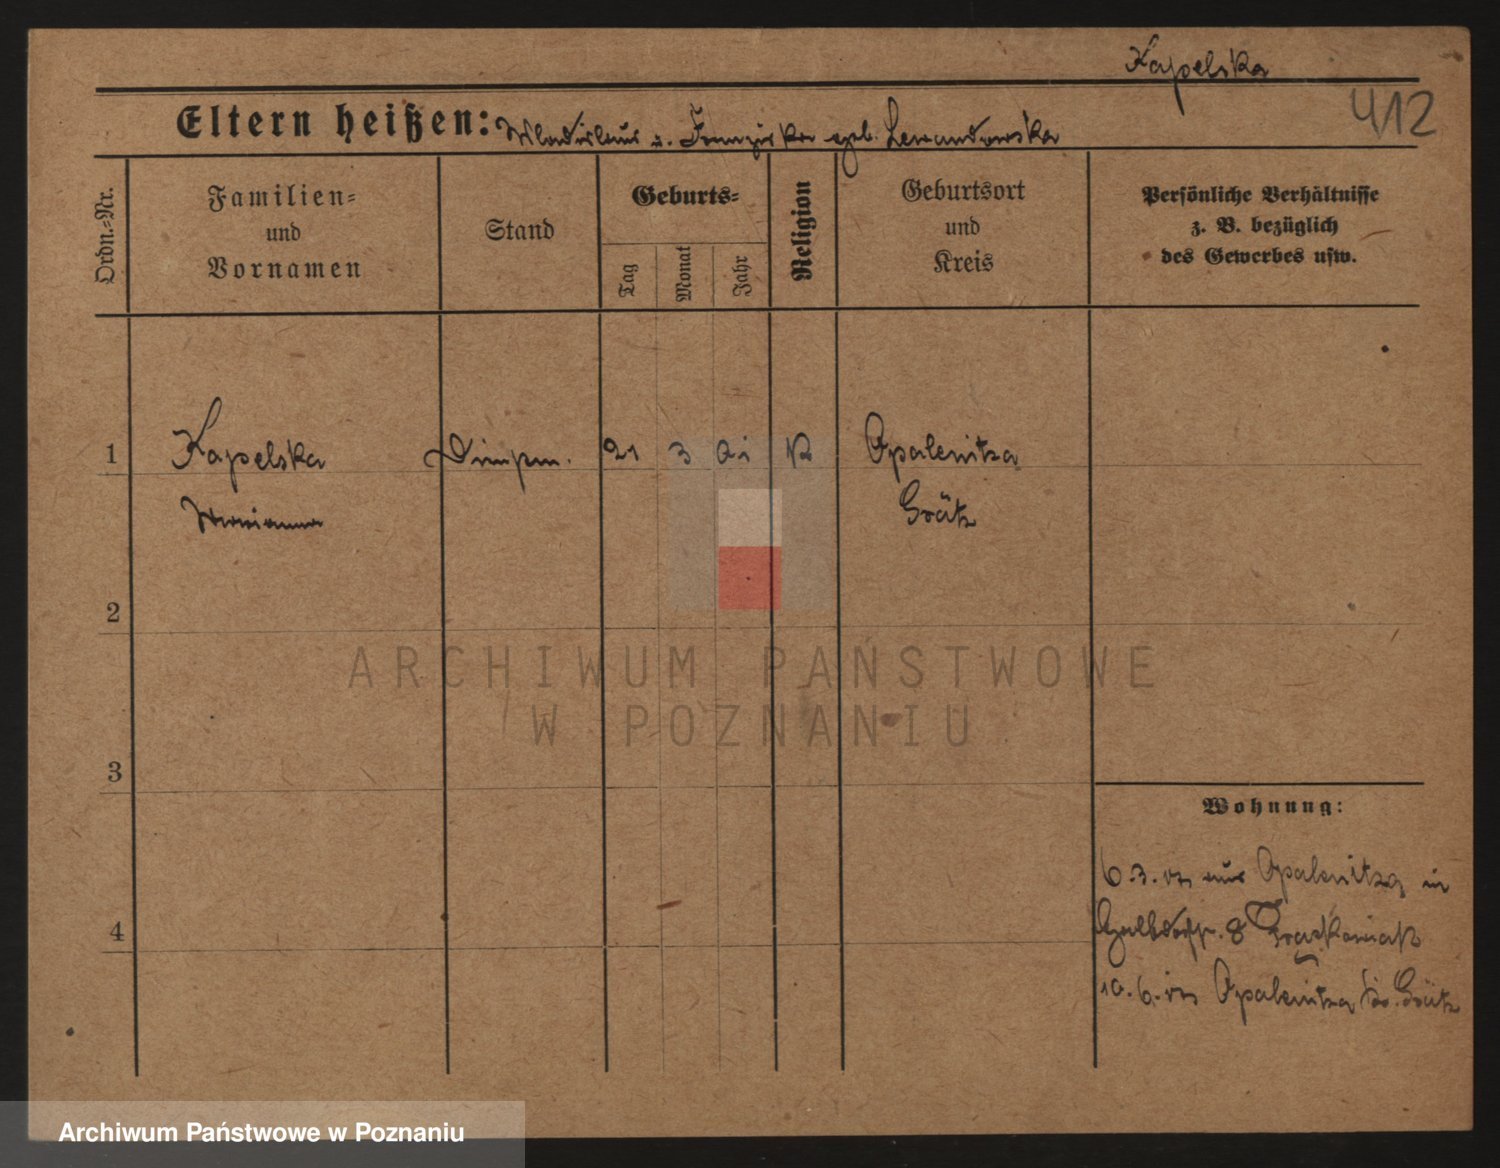 Kapelska
412
Eltern heißen: Wladislaus u. Franziska geb. Lewandowska
Ordn.=Nr.
Familien=
und
Vornamen
Stand
Geburts=
Tag
Monat
Jahr
Religion
Geburtsort
und
Kreis
Persönliche Verhältnisse
z. B. bezüglich
des Gewerbes usw.
1
Kapelska
21 3
K
Opalenitza
Marianna
Grätz
2
ARCHIWUM PAŃSTWOWE
W POZNANIU
3
Wohnung:
6.3. aus Opalenitza in
8
4
10.6. Opalenitza Kr. Grätz
Archiwum Państwowe w Poznaniu